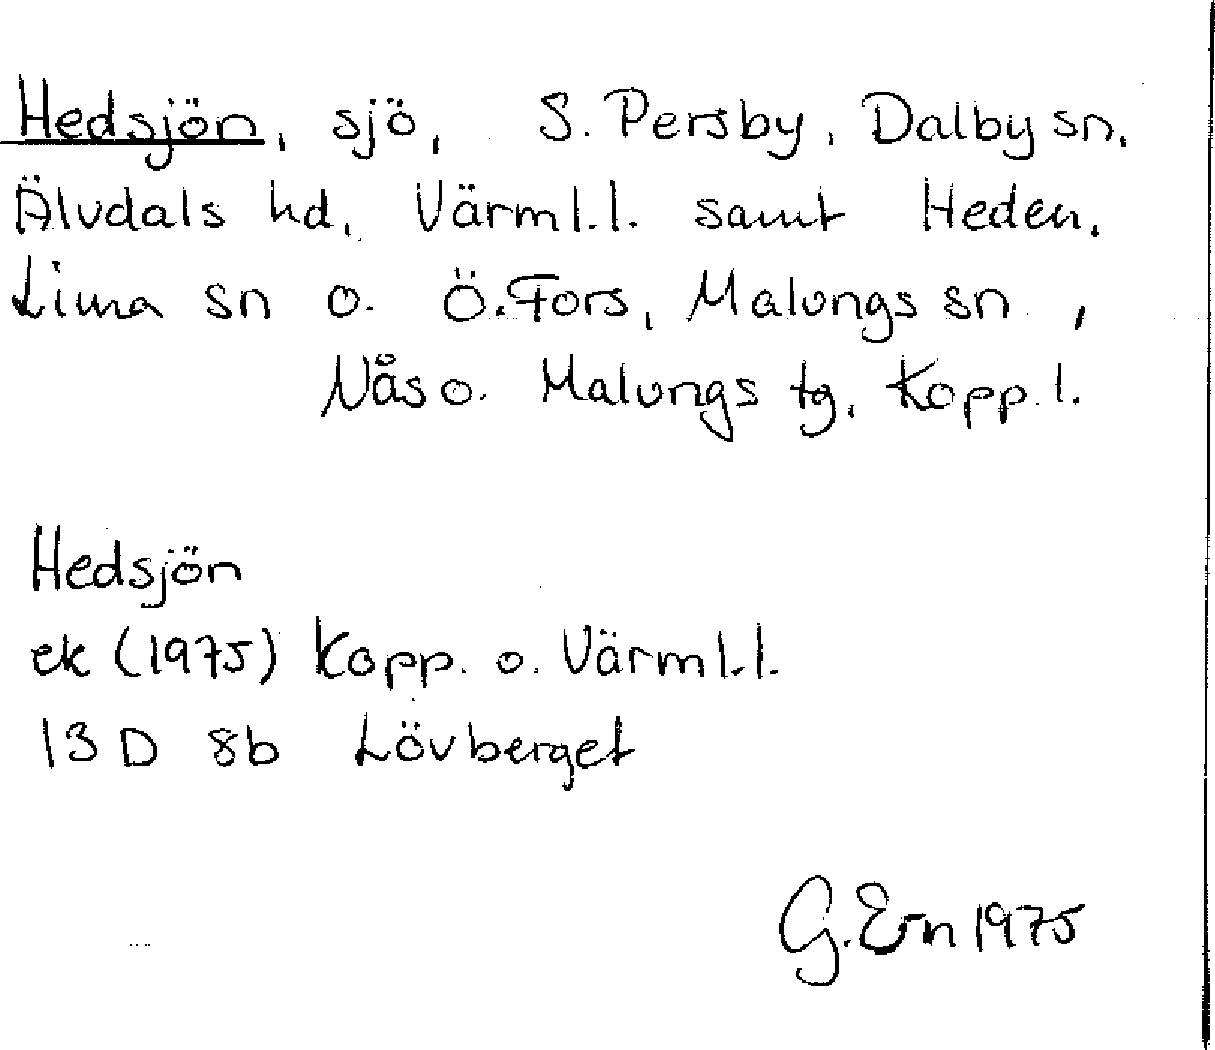 Hedsjön, sjö, S. Persby, Dalby sn,
Älvdals hd, Värml.l. samt Heden,
Lima sn o. Ö.Fors, Malungs sn ,
Nås o. Malungs tg, Kopp.l.
Hedsjön
ek (1975) Kopp. o. Värml.l.
13 D 8b Lövberget
G. Ern 1975